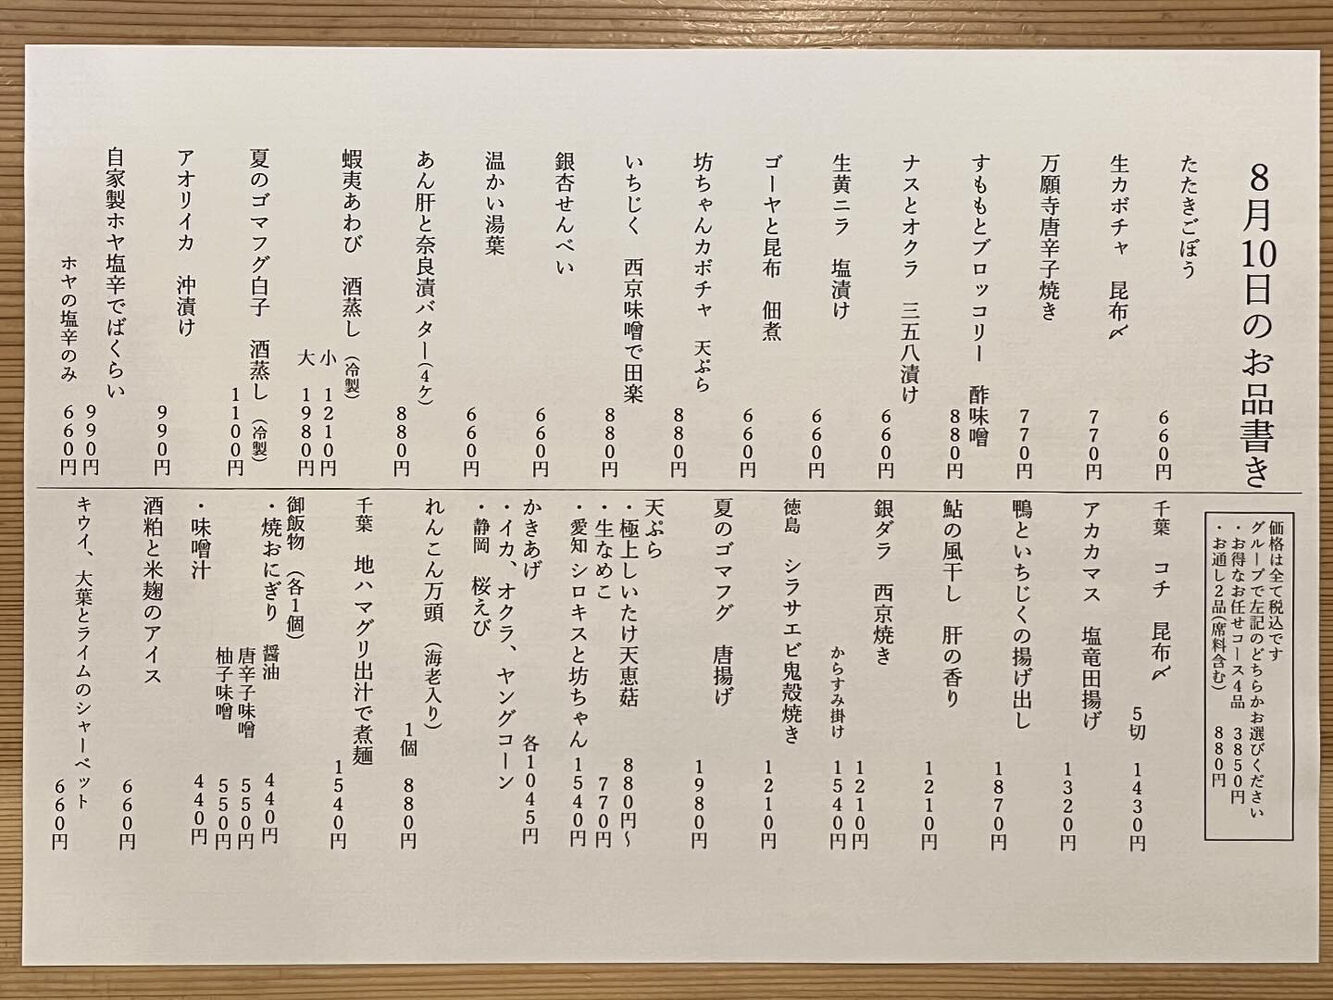 8月10日のお品書き
たたきごぼう 660円
生カボチャ 昆布〆 770円
万願寺唐辛子焼き 770円
すももとブロッコリー 酢味噌 880円
ナスとオクラ 三五八漬け 660円
生黄ニラ 塩漬け 660円
ゴーヤと昆布 佃煮 660円
坊ちゃんカボチャ 天ぷら 880円
いちじく 西京味噌で田楽 880円
銀杏せんべい 660円
温かい湯葉 660円
あん肝と奈良漬バター(4ケ) 880円
蝦夷あわび 酒蒸し(冷製)
小 1210円
大 1980円
夏のゴマフグ白子 酒蒸し(冷製)
1100円
アオリイカ 沖漬け 990円
自家製ホヤ塩辛でばくらい
990円
ホヤの塩辛のみ 660円
価格は全て税込です
グループで左記のどちらかお選びください
・お得なお任せコース4品 3850円
・お通し2品(席料含む) 880円
千葉 コチ 昆布〆
5切 1430円
アカカマス 塩竜田揚げ 1320円
鴨といちじくの揚げ出し 1870円
鮎の風干し 肝の香り 1210円
銀ダラ 西京焼き 1210円
からすみ掛け 1540円
徳島 シラサエビ鬼殻焼き 1210円
夏のゴマフグ 唐揚げ 1980円
天ぷら
・極上しいたけ天恵菇 880円〜
・生なめこ 770円
・愛知 シロキスと坊ちゃん 1540円
かきあげ 各1045円
・イカ、オクラ、ヤングコーン
・静岡 桜えび
れんこん万頭 (海老入り)
1個 880円
千葉 地ハマグリ出汁で煮麺
1540円
御飯物 (各1個)
・焼おにぎり 醤油 440円
唐辛子味噌 550円
柚子味噌 550円
・味噌汁 440円
酒粕と米麹のアイス 660円
キウイ、大葉とライムのシャーベット
660円